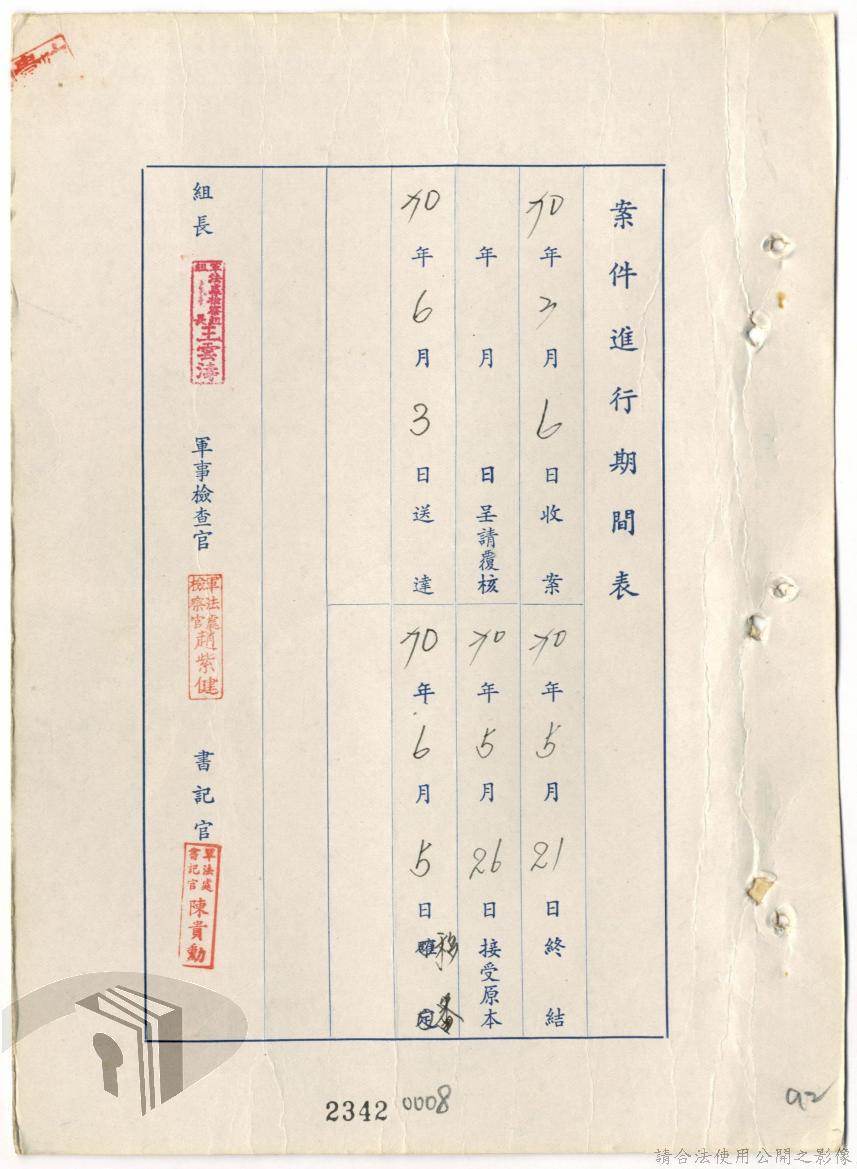 案件進行期間表
70年3月6日收案
70年5月21日終結
年月日呈請覆核
70年5月26日接受原本
70年6月3日送達
70年6月5日移審
組長
王雲濤
軍事檢查官
軍法處檢察官趙紫健
書記官
軍法處書記官陳貴勳
2342 0008
92
請合法使用公開之影像